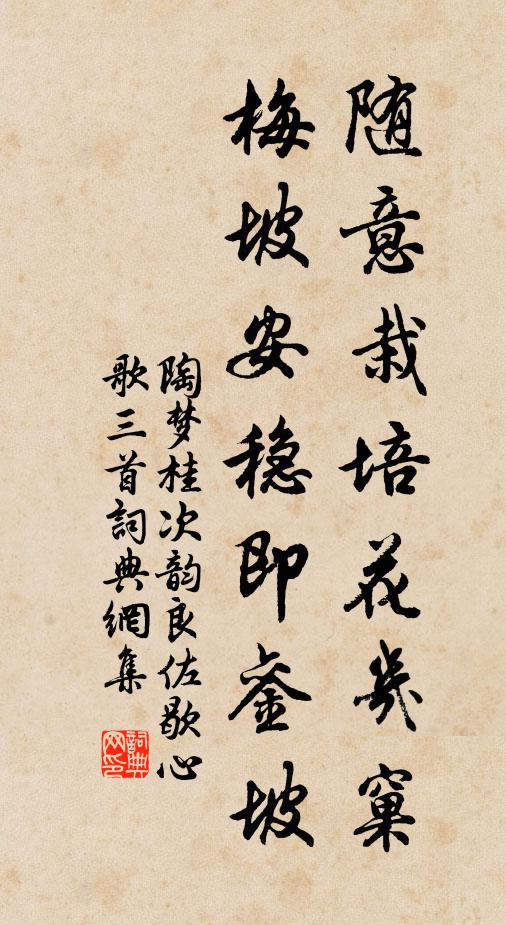 随意栽培花幾窠
梅坡安稳即銮坡
陶梦桂次韵良佐歇心
歌三首詞典網集
詞典网印